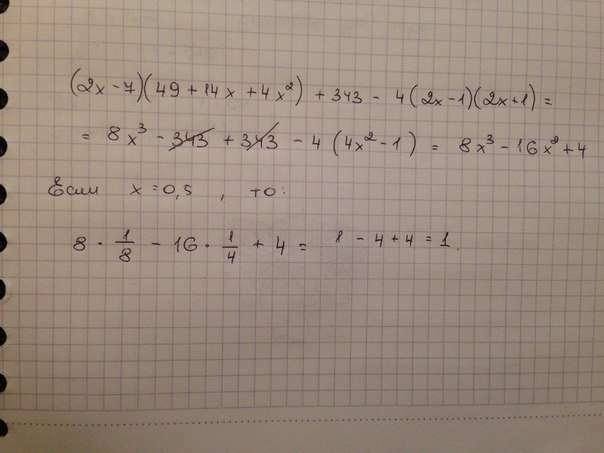 (2x-7)(49+14x+4x²)+343-4(2x-1)(2x+1)=
=8x³-343+343-4(4x²-1)=8x³-16x²+4
Если x=0,5, то:
8·1/8-16·1/4+4=1-4+4=1.